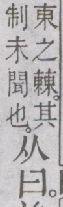 東之棘。其
制未聞也。
从曰。